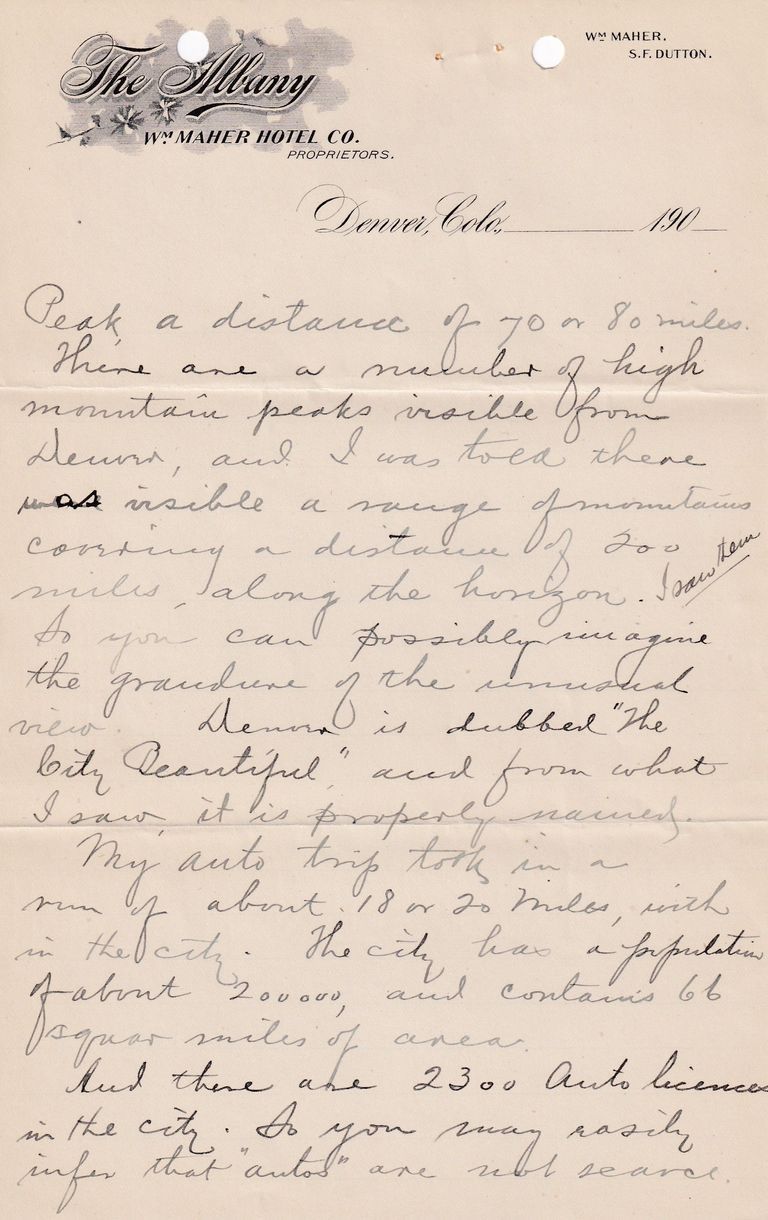 The Albany
WM MAHER HOTEL CO.
PROPRIETORS.
WM MAHER.
S.F. DUTTON.
Denver, Colo., 190
Peak, a distance of 70 or 80 miles.
There are a number of high
mountain peaks visible from
Denver, and I was told there
was visible a range of mountains
covering a distance of 200
miles, along the horizon. I saw them
So you can possibly imagine
the grandure of the unusual
view. Denver is dubbed "The
City Beautiful", and from what
I saw, it is properly named.
My auto trip took in a
run of about 18 or 20 miles, with
in the city. The city has a population
of about 200000, and contains 66
squar miles of area.
And there are 2300 Auto licences
in the city. So you may easily
infer that "autos" are not scarce.